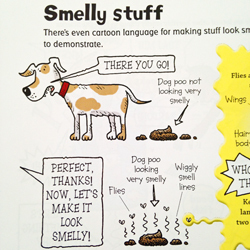 Smelly stuff
There's even cartoon language for making stuff look sm
to demonstrate.
THERE YOU GO!
Dog poo not
looking very
smelly
Flies a
Wings
Hair
body
PERFECT,
THANKS!
NOW, LET'S
MAKE IT
LOOK
SMELLY!
Dog poo
looking
very smelly
Wiggly
smell
lines
Flies
WHO
TH
Ke
la
two